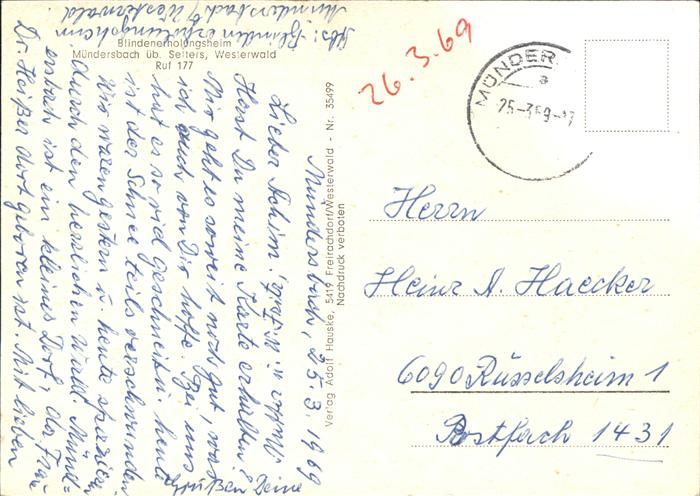 Abs: Blindenerholungsheim
Mündersbach / Westerwald.
Blindenerholungsheim
Mündersbach üb. Selters, Westerwald
Ruf 177
Mündersbach, 25.3.1969
Lieber Achim!
Hast Du meine Karte erhalten?
Mir geht es soweit noch gut, was
ich auch von Dir hoffe. Bei uns
hat es so viel geschneit. heute
ist der Schnee teils verschwunden
Wir waren gestern u. heute spazieren
durch den herrlichen Wald. Münd=
ersbach ist ein kleines Dorf, da Frau
Dr. Heißer dort geboren ist. Mit lieben
Grüßen Deine
Mutter u.
Verlag Adolf Hauske, 5419 Freirachdorf/Westerwald - Nr. 35499
Nachdruck verboten
26.3.69
MÜNDER
a
25-3 69-17
Herrn
Heinz A. Haecker
6090 Rüsselsheim 1
Postfach 1431